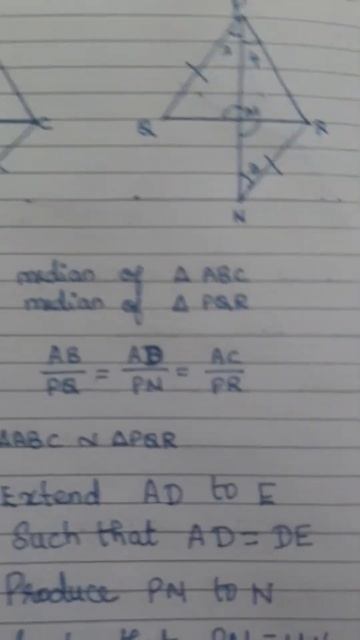 P
3 4
Q M R
C
2
N
median of Δ ABC
median of Δ PQR
AB/PQ = AD/PN = AC/PR
ΔABC ~ ΔPQR
Extend AD to E
Such that AD = DE
Produce PN to N